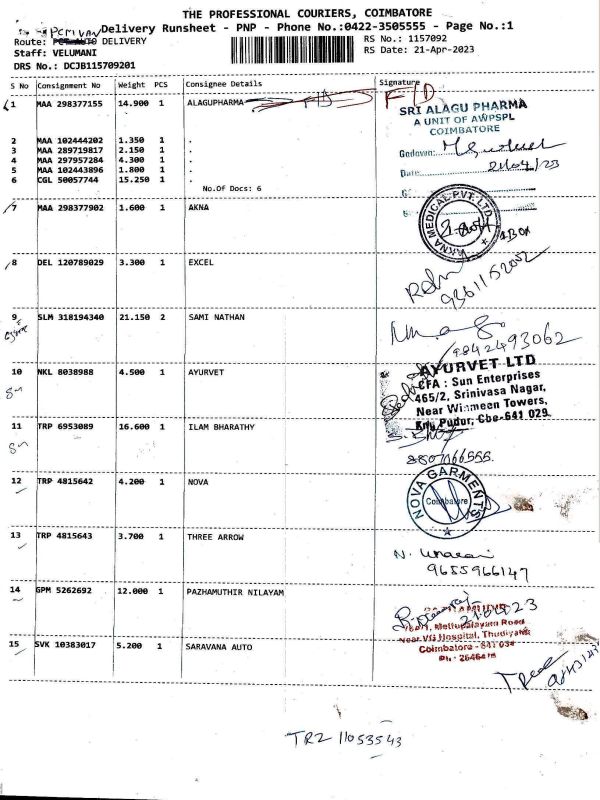 THE PROFESSIONAL COURIERS, COIMBATORE
Delivery Runsheet - PNP - Phone No.:0422-3505555 - Page No.:1
Route: PCT AUTO DELIVERY
RS No.: 1157092
Staff: VELUMANI
RS Date: 21-Apr-2023
DRS No.: DCJB115709201
S No Consignment No Weight PCS Consignee Details Signature
1 MAA 298377155 14.900 1 ALAGUPHARMA F/D F/D
SRI ALAGU PHARMA
A UNIT OF AWPSPL
COIMBATORE
2 MAA 102444202 1.350 1 .
3 MAA 289719817 2.150 1 .
Godown:
4 MAA 297957284 4.300 1 .
5 MAA 102443896 1.800 1 .
Date: 21/04/23
6 CGL 50057744 15.250 1 .
No.Of Docs: 6
7 MAA 298377902 1.600 1 AKNA
AKNA MEDICAL PVT. LTD
1 BOX
8 DEL 120789029 3.300 1 EXCEL
9361152002
9 SLM 318194340 21.150 2 SAMI NATHAN
9842493062
10 NKL 8038988 4.500 1 AYURVET
AYURVET LTD
CFA : Sun Enterprises
465/2, Srinivasa Nagar,
Near Winmeen Towers,
Kny Pudur, Cbe-641 029.
11 TRP 6953089 16.600 1 ILAM BHARATHY
8807066555
12 TRP 4815642 4.200 1 NOVA
NOVA GARMENTS
Coimbatore
13 TRP 4815643 3.700 1 THREE ARROW
9655966147
14 GPM 5262692 12.000 1 PAZHAMUTHIR NILAYAM
Mettupalayam Road
Near VG Hospital, Thudiyalur
Coimbatore - 641 034
15 SVK 10383017 5.200 1 SARAVANA AUTO
TRZ 11053543